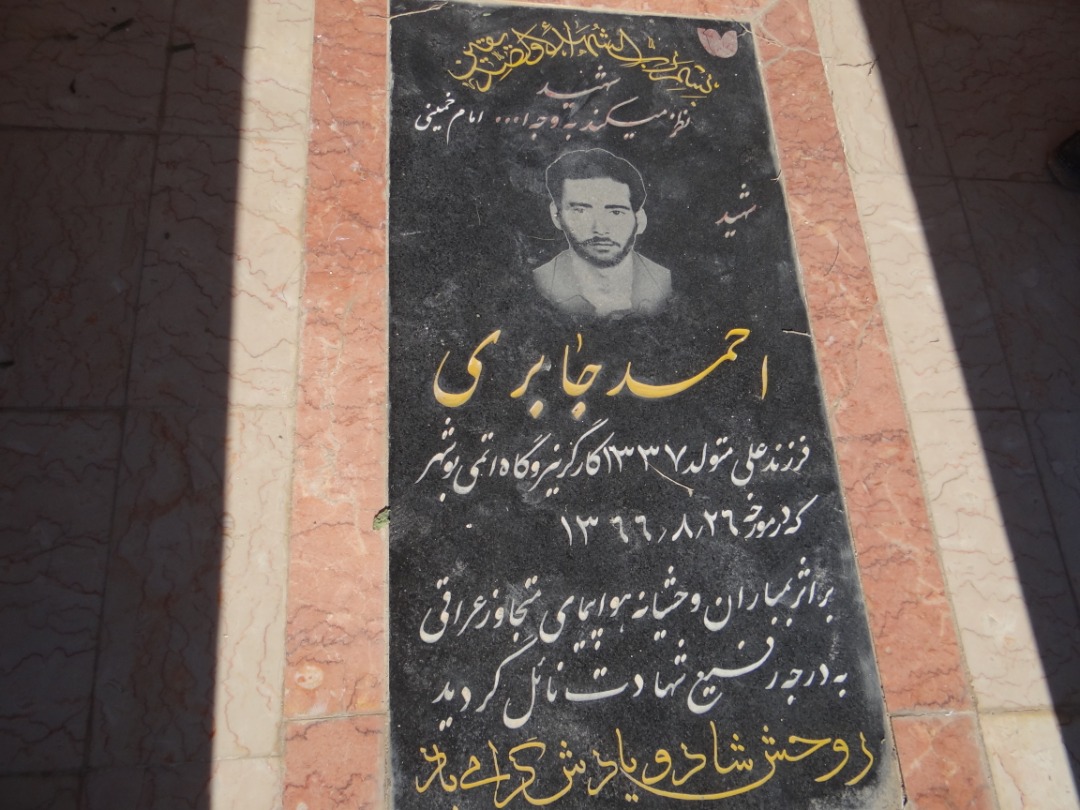 بسم رب الشهداء والصدیقین
شهید
نظر میکند به وجه ا... امام خمینی
شهید
احمد جابری
فرزند علی متولد ۱۳۳۷ کارگر نیروگاه اتمی بوشهر
که در مورخه ۱۳۶۶٫۸٫۲۶
بر اثر بمباران وحشیانه هواپیمای متجاوز عراقی
به درجه رفیع شهادت نائل گردید
روحش شاد و یادش گرامی باد